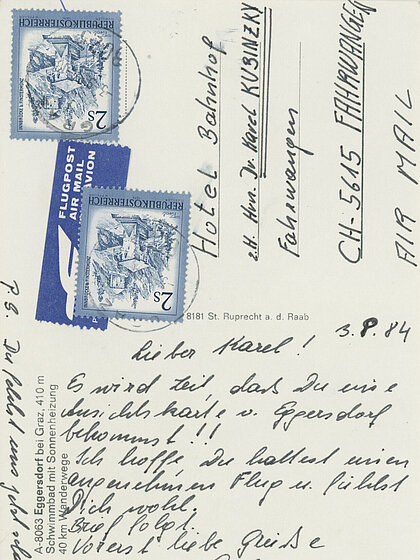 REPUBLIK ÖSTERREICH
2 S
FLUGPOST
AIR MAIL
PAR AVION
REPUBLIK ÖSTERREICH
2 S
Hotel Bahnhof
z.H. Hrn. Dr. Karel KUBINZKY
Fahrwangen
CH-5615 FAHRWANGEN
AIR MAIL
8181 St. Ruprecht a. d. Raab
A-8063 Eggersdorf bei Graz, 410 m
Schwimmbad mit Sonnenheizung
40 km Wanderwege
3.8.84
Lieber Karel!
Es wird Zeit, daß Du eine
Ansichtskarte v. Eggersdorf
bekommst!!!
Ich hoffe, Du hattest einen
angenehmen Flug u. fühlst
Dich wohl.
Brief folgt.
Vorerst liebe Grüße
P.S. Du fehlst uns